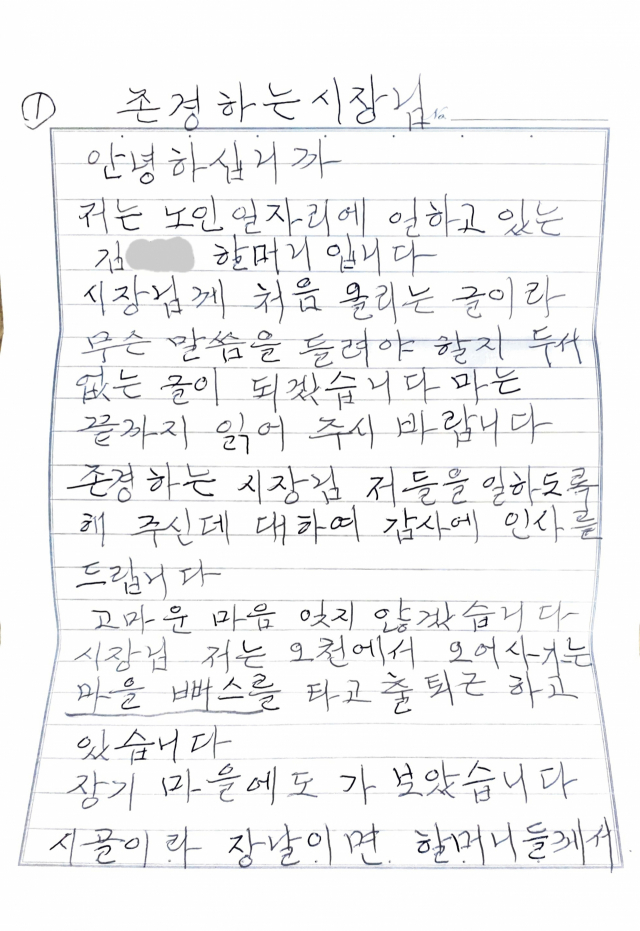 ① 존경하는 시장님
No.
안녕하십니까
저는 노인일자리에 일하고 있는
김 할머니 입니다
시장님께 처음 올리는 글이라
무슨 말씀을 들려야 할지 두서
없는 글이 되겠습니다 마는
끝까지 읽어 주시 바랍니다
존경하는 시장님 저들을 일하도록
해 주신데 대하여 감사에 인사를
드립니다
고마운 마음 잊지 않겠습니다
시장님 저는 오천에서 오어사가는
마을 뻐스를 타고 출퇴근 하고
있습니다
장기 마을에도 가 보았습니다
시골이라 장날이면 할머니들께서